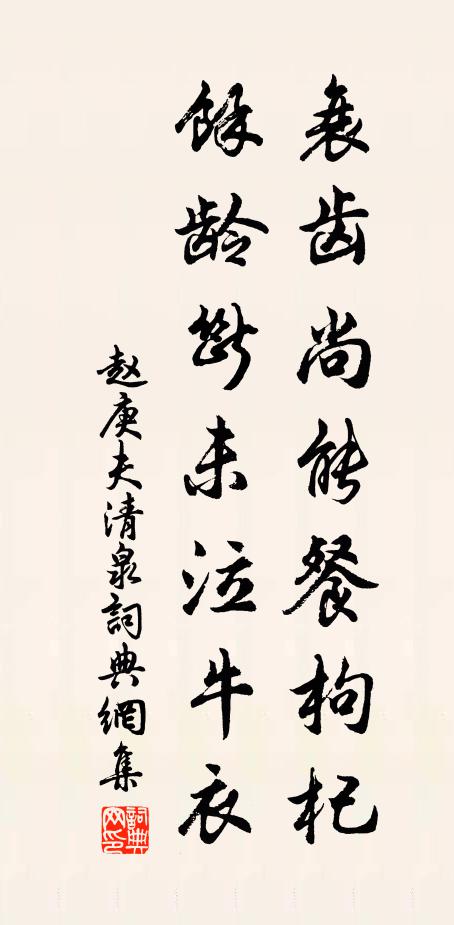 衰齿尚能餐枸杞
馀龄断未泣牛衣
赵庚夫清泉詞典網集
詞典网印